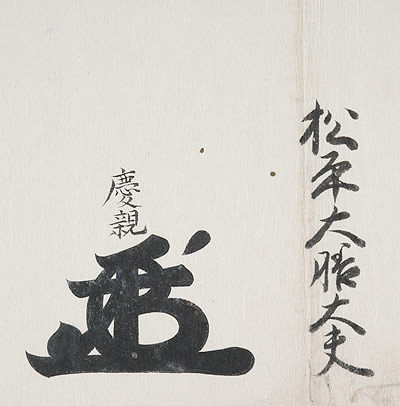 松平大膳大夫
慶親